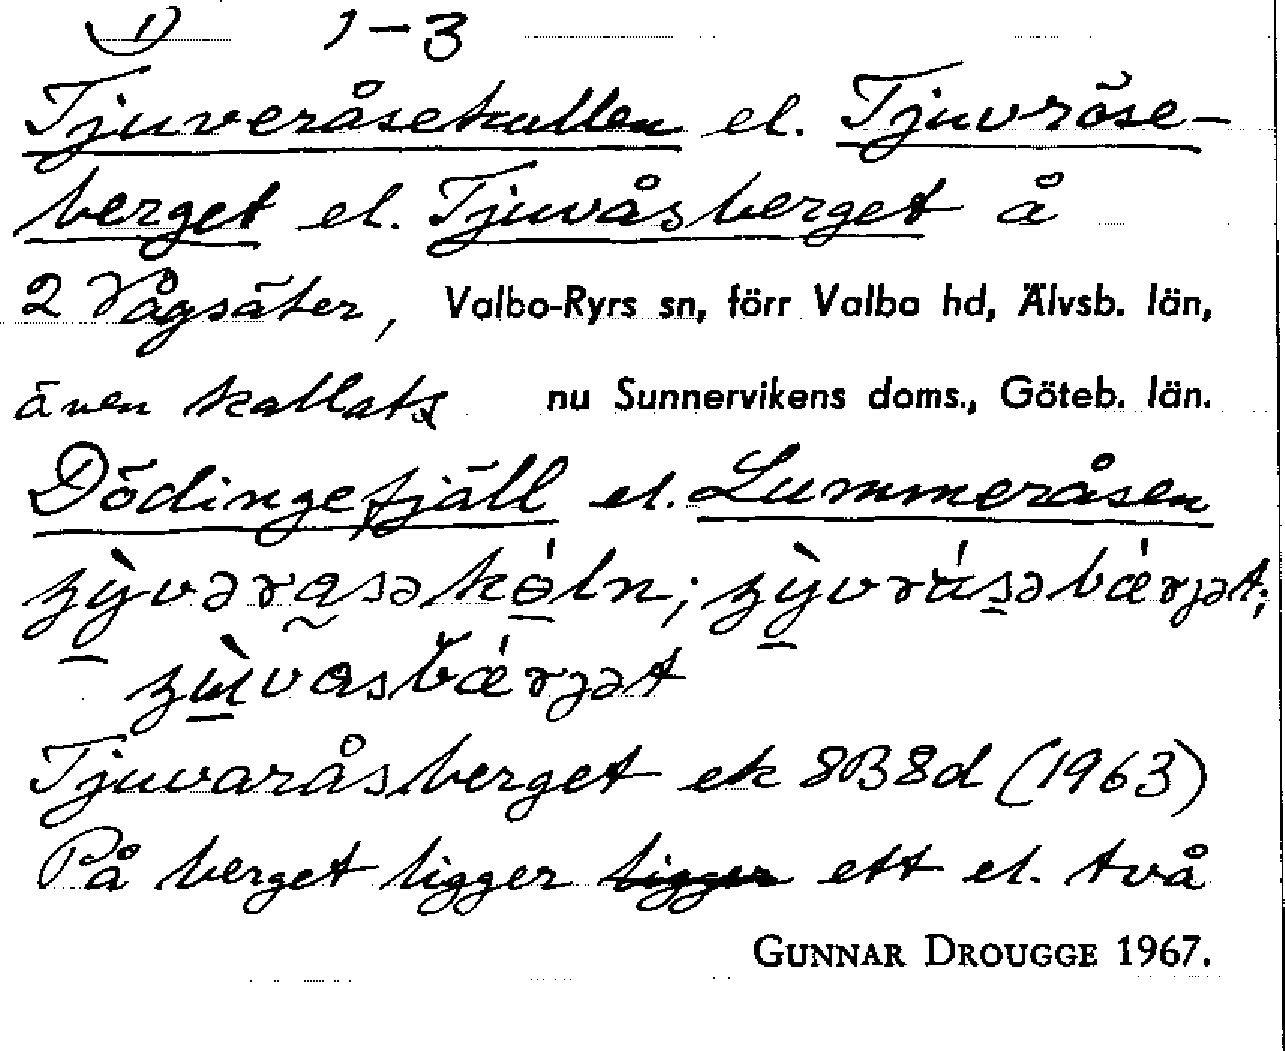 1) 1-3
Tjuveråsekullen el. Tjuvröse-
berget el. Tjuvåsberget å
2 Vågsäter, Valbo-Ryrs sn, förr Valbo hd, Älvsb. län,
även kallats nu Sunnervikens doms., Göteb. län.
Dödingefjäll el. Lummeråsen
Tjuvaråsberget ek 8B8d (1963)
På berget ligger ligger ett el. två
GUNNAR DROUGGE 1967.